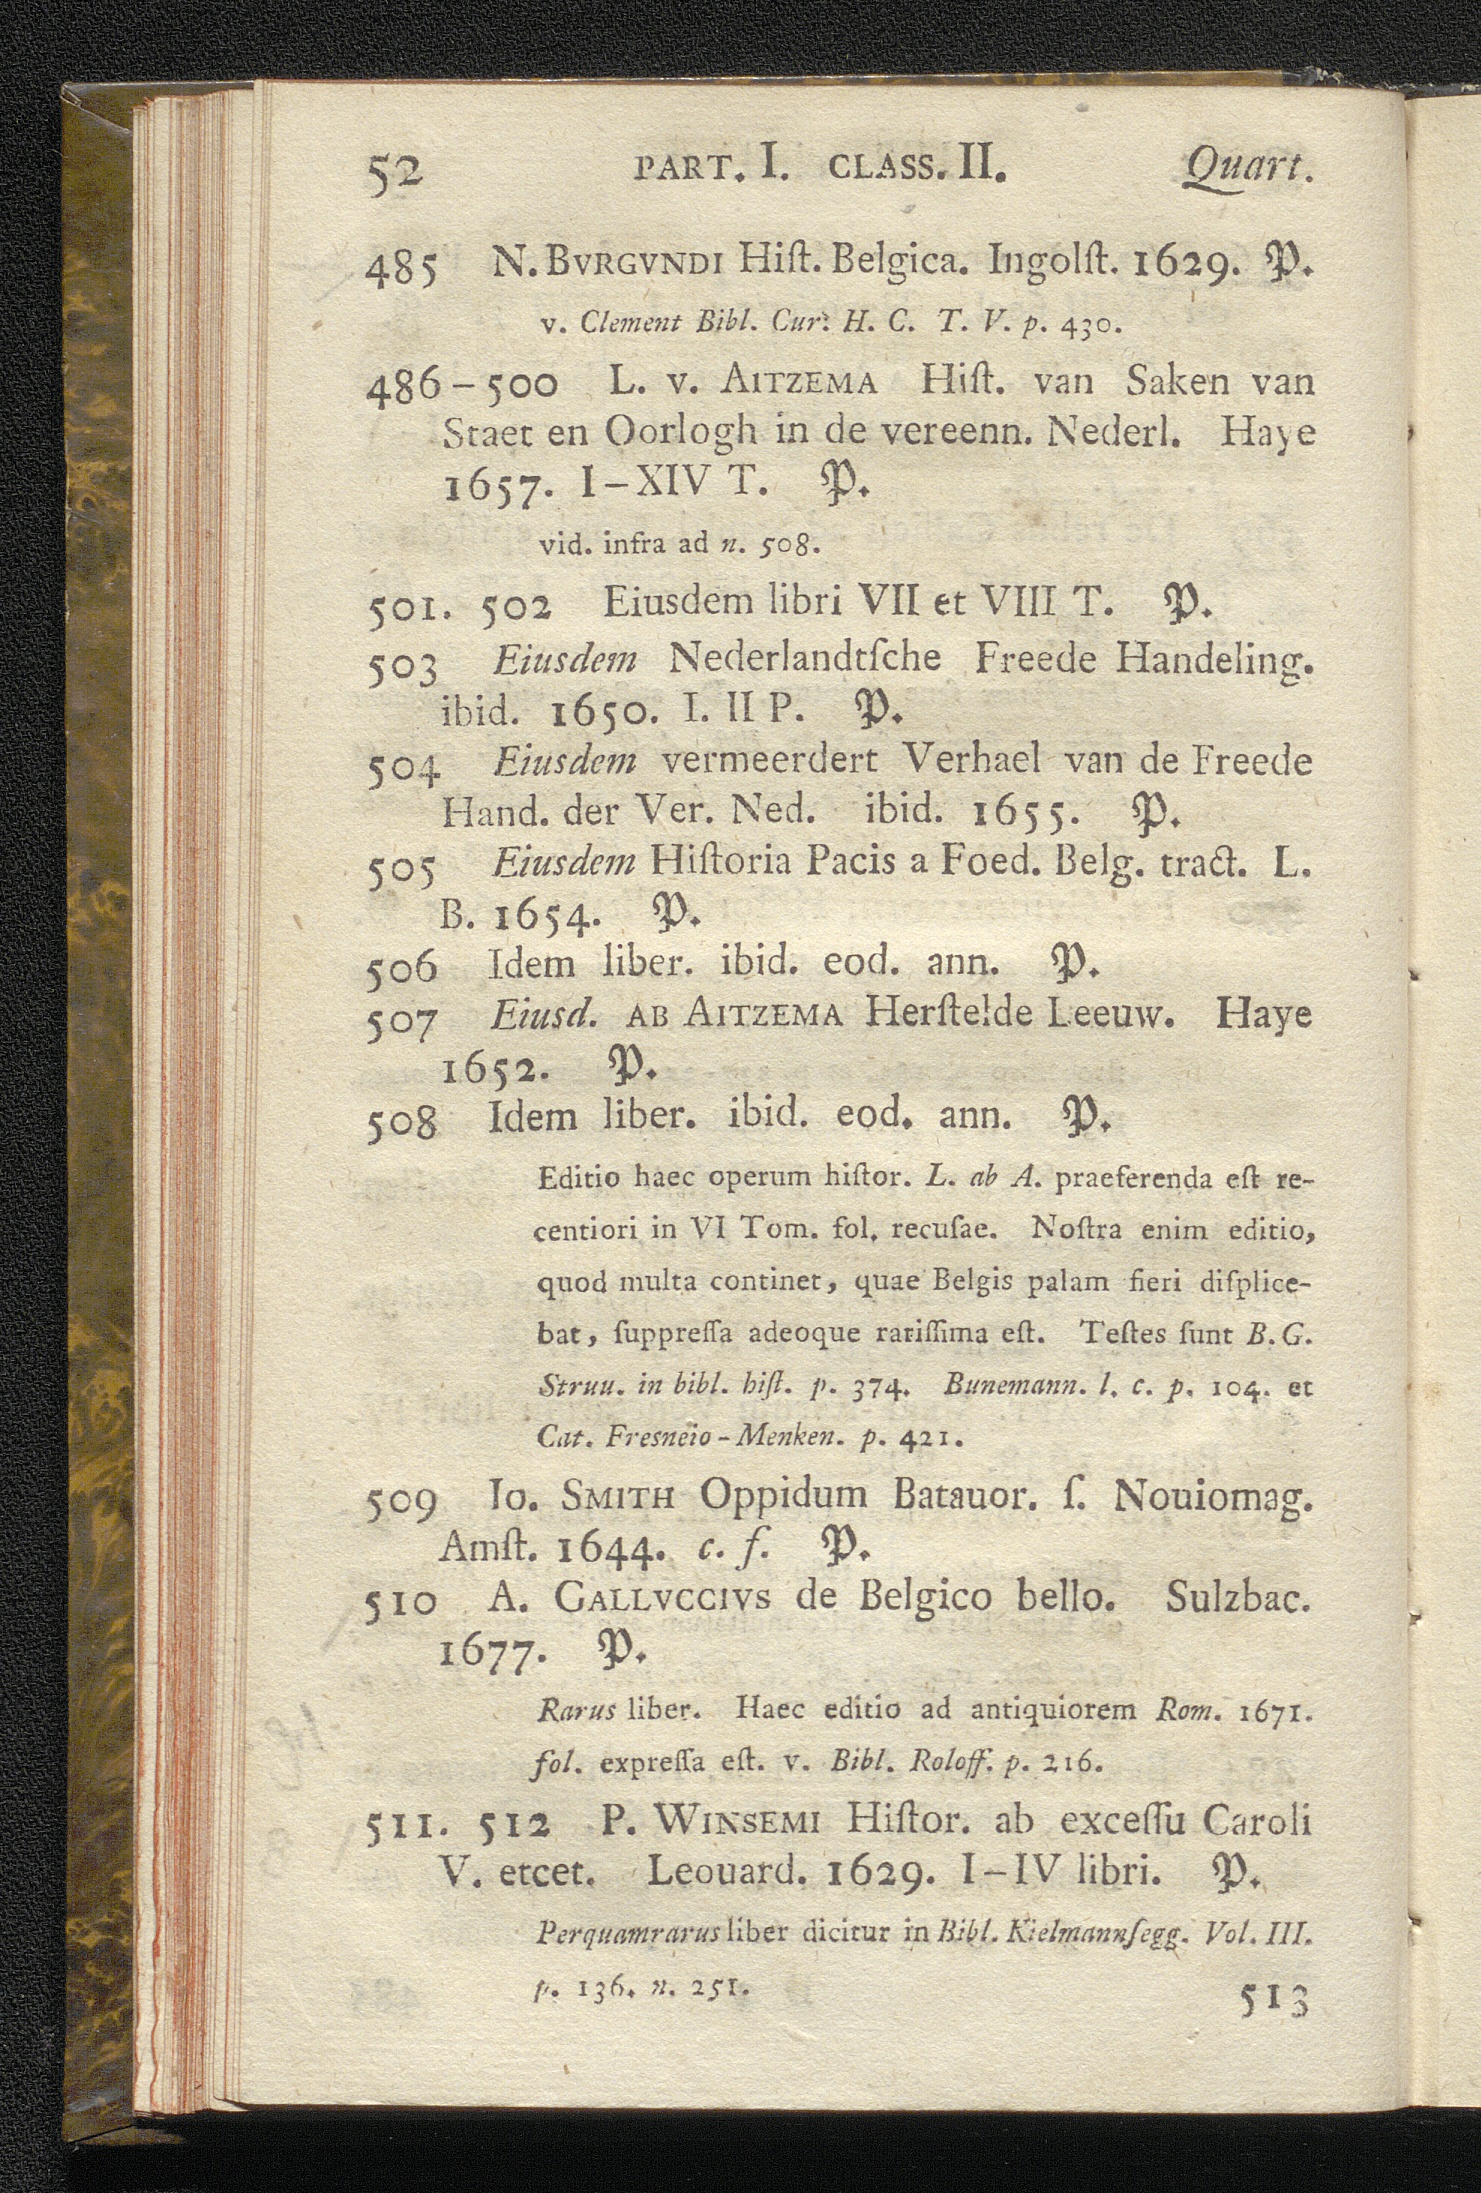 52 PART. I. CLASS. II. Quart.
485 N. BVRGVNDI Hiſt. Belgica. Ingolſt. 1629. P.
v. Clement Bibl. Cur. H. C. T. V. p. 430.
486–500 L. v. AITZEMA Hiſt. van Saken van
Staet en Oorlogh in de vereenn. Nederl. Haye
1657. I–XIV T. P.
vid. infra ad n. 508.
501. 502 Eiusdem libri VII et VIII T. P.
503 Eiusdem Nederlandtſche Freede Handeling.
ibid. 1650. I. II P. P.
504 Eiusdem vermeerdert Verhael van de Freede
Hand. der Ver. Ned. ibid. 1655. P.
505 Eiusdem Hiſtoria Pacis a Foed. Belg. tract. L.
B. 1654. P.
506 Idem liber. ibid. eod. ann. P.
507 Eiusd. AB AITZEMA Herſtelde Leeuw. Haye
1652. P.
508 Idem liber. ibid. eod. ann. P.
Editio haec operum hiſtor. L. ab A. praeferenda eſt re-
centiori in VI Tom. fol. recuſae. Noſtra enim editio,
quod multa continet, quae Belgis palam fieri diſplice-
bat, ſuppreſſa adeoque rariſſima eſt. Teſtes ſunt B. G.
Struu. in bibl. hiſt. p. 374. Bunemann. l. c. p. 104. et
Cat. Fresneio-Menken. p. 421.
509 Io. SMITH Oppidum Batauor. ſ. Nouiomag.
Amſt. 1644. c. f. P.
510 A. GALLVCCIVS de Belgico bello. Sulzbac.
1677. P.
Rarus liber. Haec editio ad antiquiorem Rom. 1671.
fol. expreſſa eſt. v. Bibl. Roloff. p. 216.
511. 512 P. WINSEMI Hiſtor. ab exceſſu Caroli
V. etcet. Leouard. 1629. I–IV libri. P.
Perquamrarus liber dicitur in Bibl. Kielmannſegg. Vol. III.
p. 136. n. 251.
513